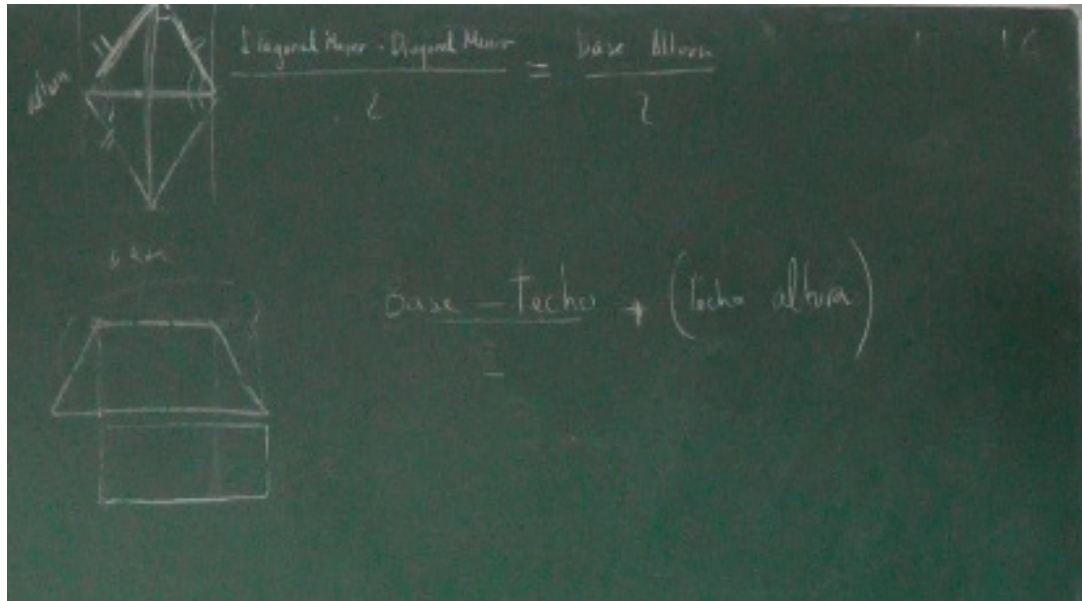 altura
Diagonal Mayor - Diagonal Menor = base Altura
2 2
Base - Techo + (Techo altura)
2